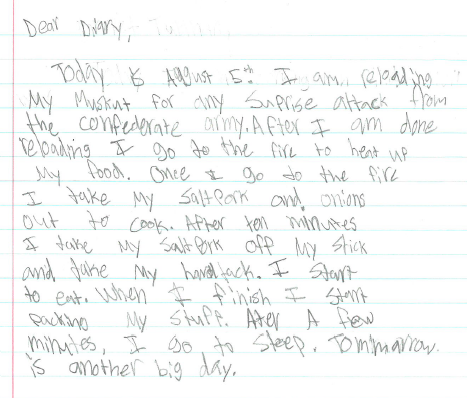 Dear Diary,
Today is August 5th I am reloading
My Muskut for any Suprise attack from
the confederate army. After I am done
reloading I go to the fire to heat up
My food. Once I go to the fire
I take My Saltpork and onions
out to cook. After ten minutes
I take My Saltpork off My Stick
and take My hardtack. I Start
to eat. When I finish I Start
packing My Stuff. After A few
minutes, I go to Sleep. Tommarrow
is another big day.